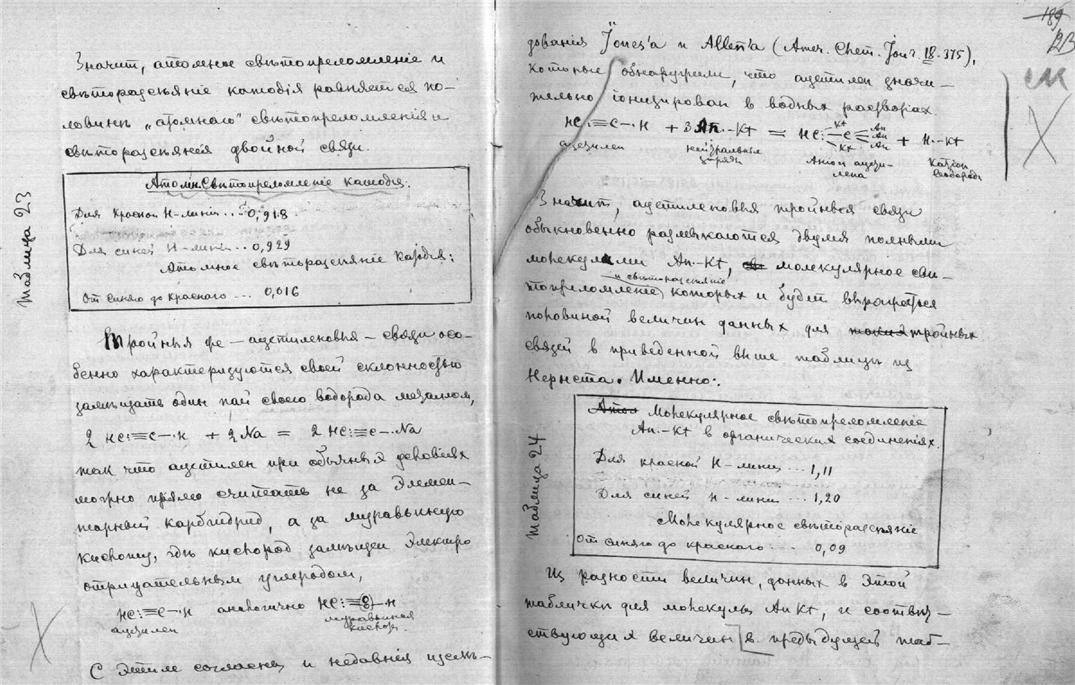 Значит, атомное свѣтопреломленіе и
свѣторазсѣяніе катодія равняется по-
ловинѣ „атомнаго" свѣтопреломленія и
свѣторазсѣянія двойной связи.
Таблица 23
Атомн. Свѣтопреломленіе катодія:
Для красной H-линіи ... 0,918
Для синей H-линіи ... 0,929
Атомное свѣторазсѣяніе катодія:
От синяго до краснаго ... 0,016
Тройныя же – ацетиленовыя – связи осо-
бенно характеризуются своей склонностью
замѣщать один пай своего водорода металлом,
2 HC⫶≡C–·H + 2 Na = 2 HC⫶≡C–·Na
так что ацетилен при обычных условіях
можно прямо считать не за элемен-
тарный карбгидрид, а за муравьиную
кислоту, гдѣ кислород замѣщен электро
отрицательным углеродом,
HC⫶≡C–·H аналогично HC⫶≡O–·H
ацетилен муравьиная
кислота.
С этим согласны и недавнія изслѣ-
189
дованія Jones'a и Allen'a (Amer. Chem. Jour. 18.375),
которые обнаружили, что ацетилен значи-
тельно іонизирован в водных растворах.
HC⫶≡C–·H + 3 An.–Kt = HC C An An An Kt Kt + H.–Kt
ацетилен нейтральный Аніон ацети-
лена Катіон
водорода
Значит, ацетиленовыя тройныя связи
обыкновенно размыкаются двумя полными
молекулами An.–Kt, молекулярное свѣ-
и свѣторазсѣяніе
топреломленіе, которых и будет выражаться
половиной величин данных для тройных
связей в приведенной выше таблицы из
Нернста. Именно:
Таблица 24
Атом Молекулярное свѣтопреломленіе
An.–Kt в органических соединеніях.
Для красной H-линіи ... 1,11
Для синей H-линіи ... 1,20
Молекулярное свѣторазсѣяніе
От синяго до краснаго ... 0,09
Из разности величин, данных в этой
табличкѣ для молекулы AnKt, и соотвѣт-
ствующих величин в предыдущей таб-